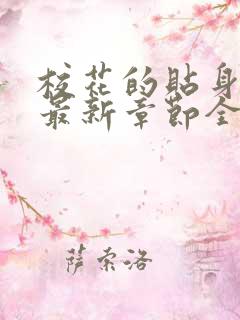 校花的貼身
最新章節全
萨索洛